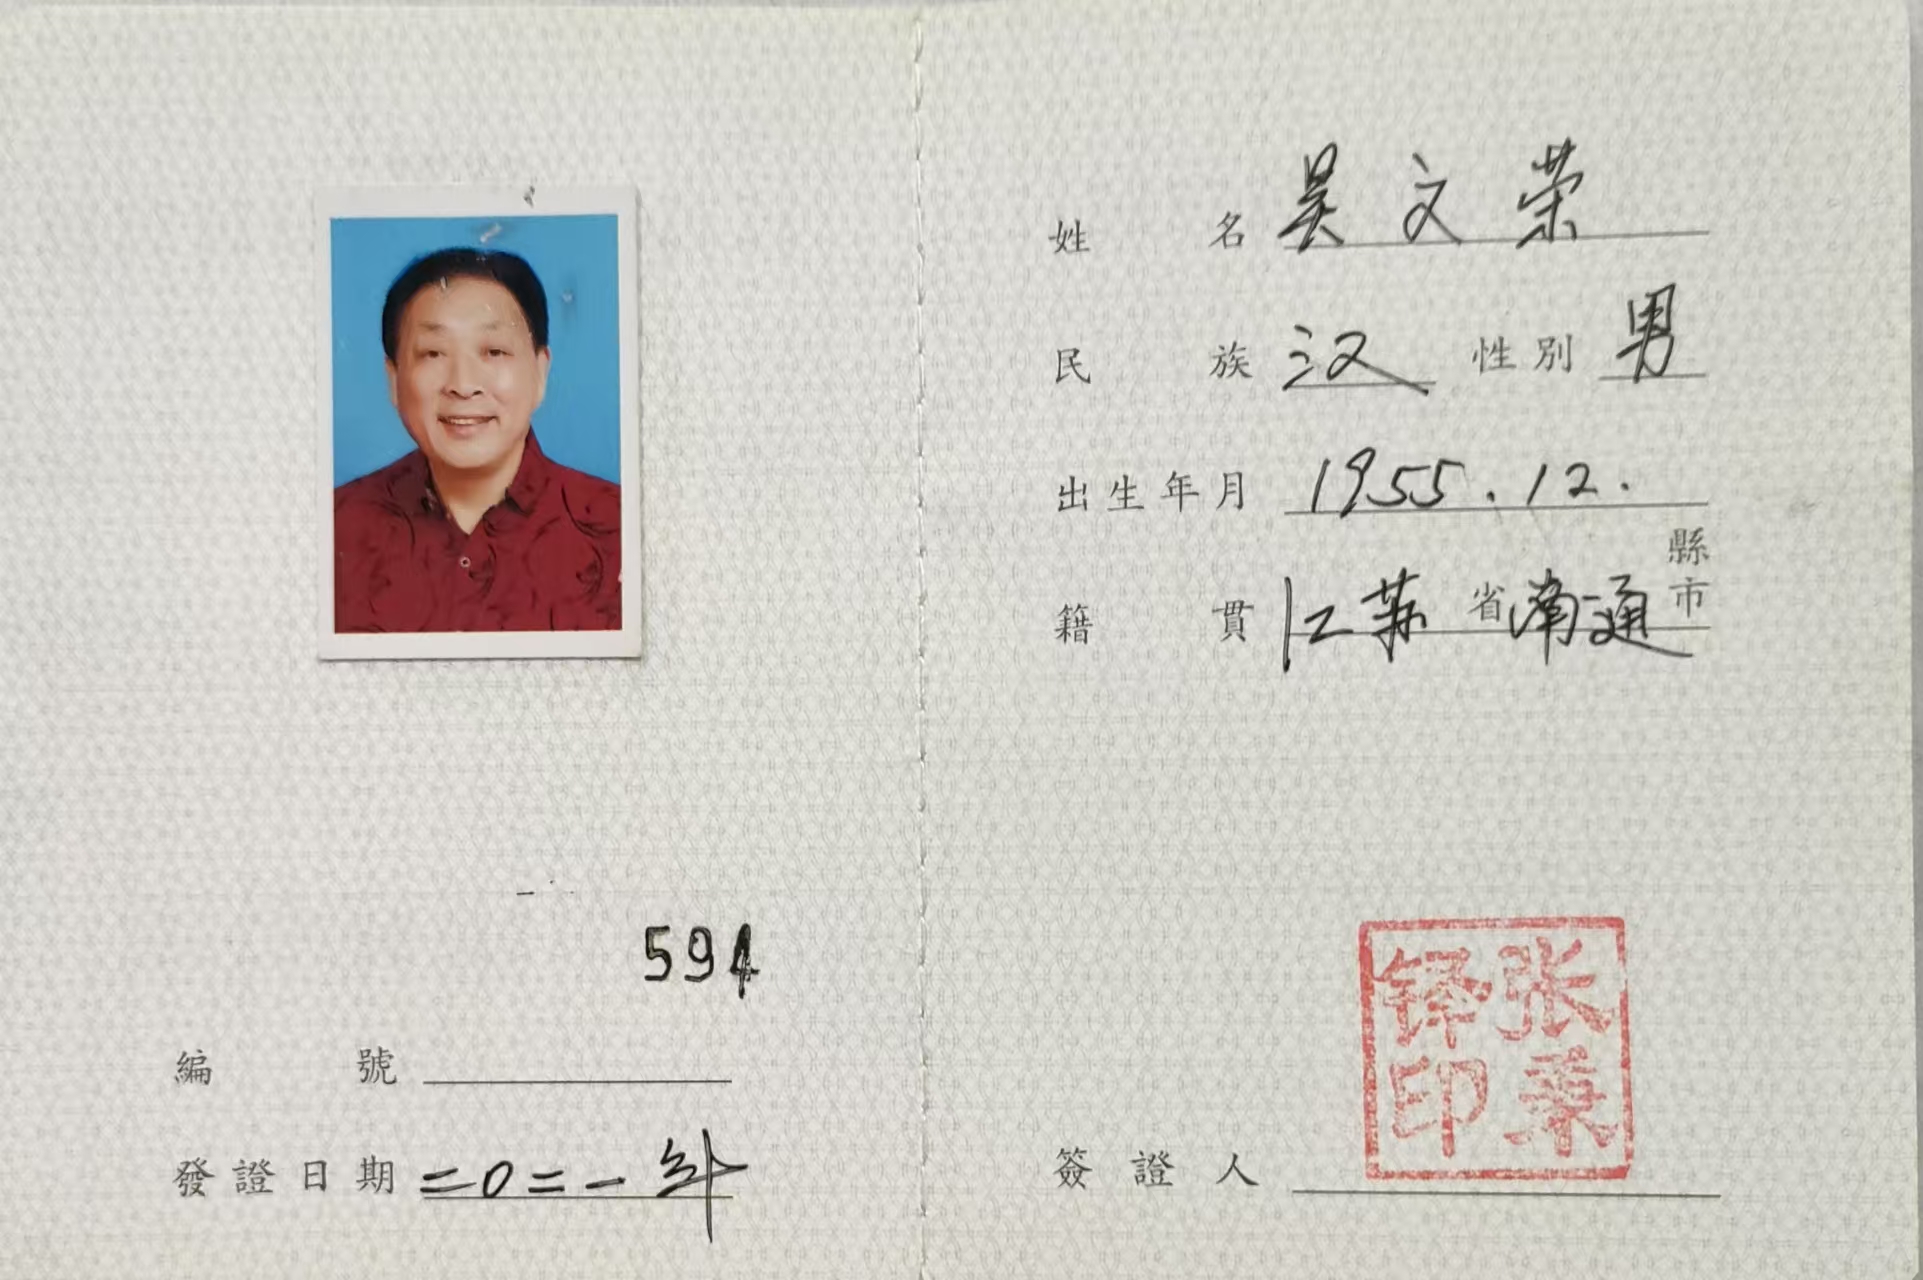 594
編號
發證日期 二〇二一年
姓名 吴文荣
民族 汉 性別 男
出生年月 1955.12.
籍貫 江苏省南通縣市
簽證人
张秉铎印